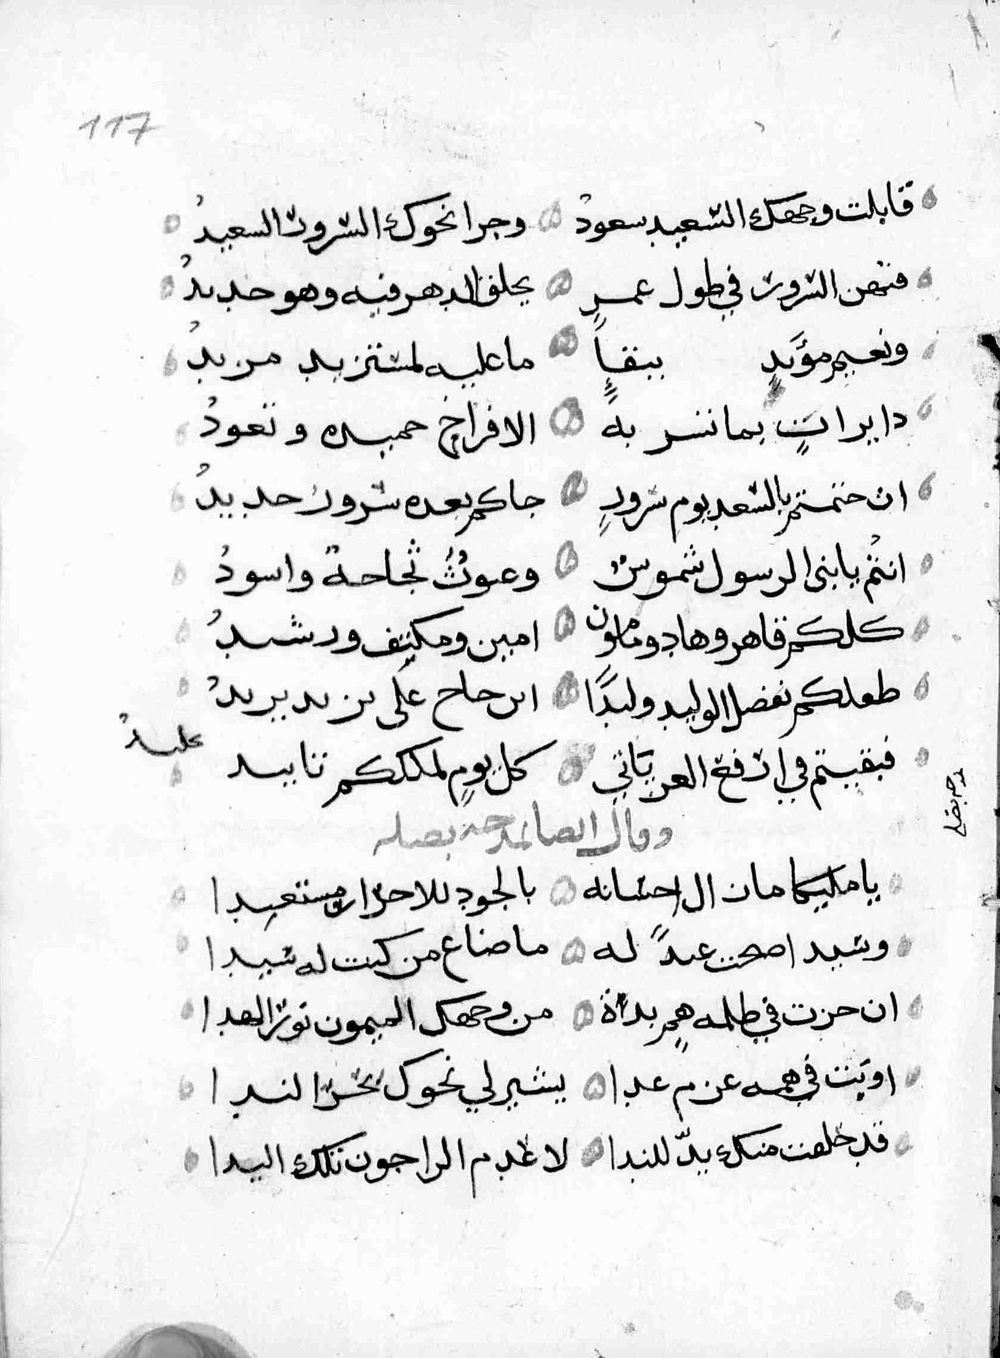 117
قابلت وجهك السعيد سعودُ وجرا نحوك السرور السعيدُ
فتهن السرور في طول عمرٍ يخلق الدهر فيه وهو جديدُ
ونعيم مؤبدٍ ببقاءٍ ما عليه لمستزيد مزيدُ
دايرات بما تسر به الافراح حميده وتعودُ
ان ختمتم بالسعد يوم سرورٍ جاكم بعده سرور جديدُ
انتم يا بني الرسول شموس وغيوث ثجاجة واسودُ
كلكم قاهر وهاد ومامون امين ومكتف ورشيدُ
طفلكم يفضل الوليد وليدًا اين حاج على يزيد يزيدُ
فبقيتم في ارفع العز ياتي كل يومٍ لملككم تاييد
عليه
وقال ايضا يمدحه بصله
يمدحه بصله
يا مليكا مان ال احسانه بالجود للاحرار مستعبدا
وسيد اصحت عبدً له ما ضاع من كنت له سيدا
ان حرت في ظلمه هم بداة من وجهك الميمون نور الهدا
اوبت في همه عزم عدا يشير لي نحوك بحر الندا
قد خلفت منك يدّ للندا لا عدم الراجون تلك اليدا